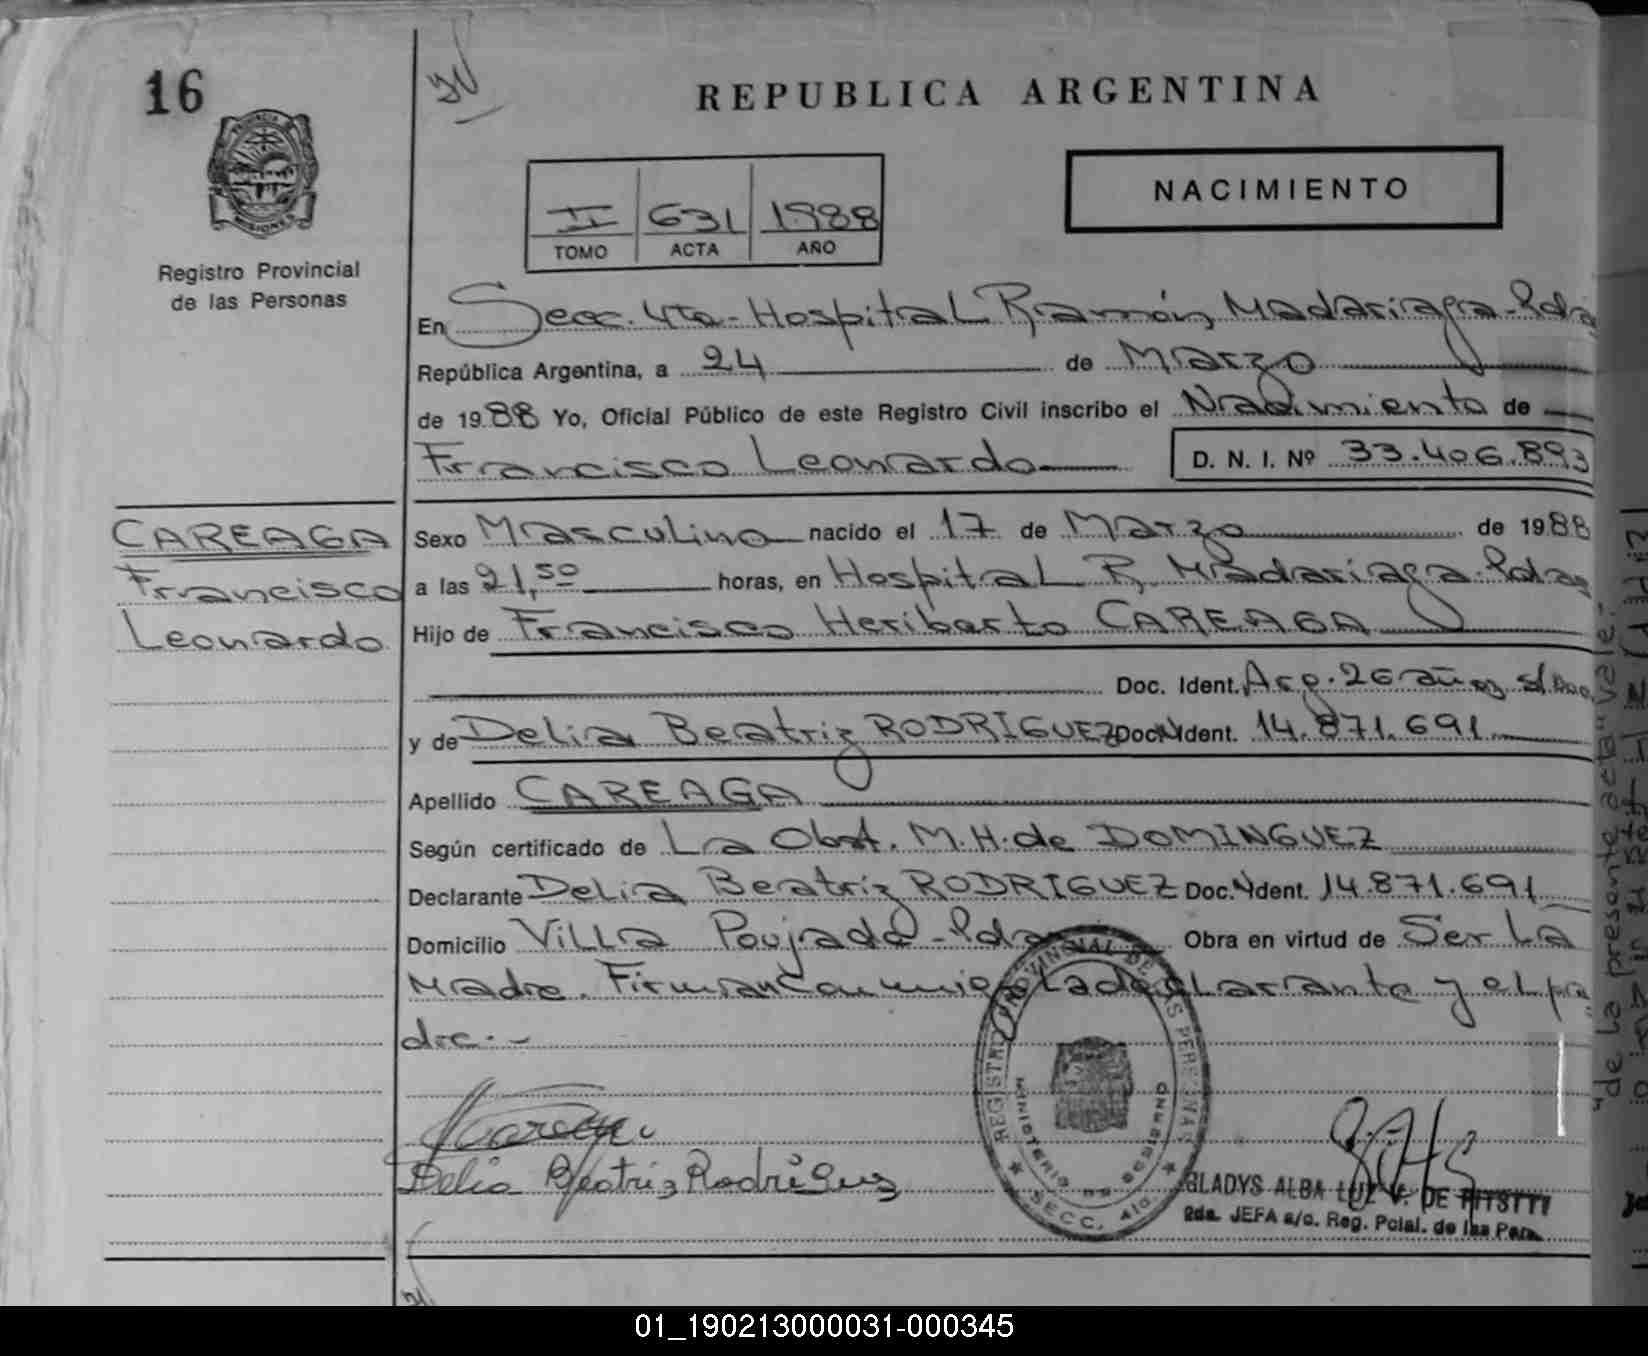 16
REPUBLICA ARGENTINA
PROVINCIA DE MISIONES
Registro Provincial
de las Personas
II 631 1988
TOMO ACTA AÑO
NACIMIENTO
En Secc. 4ta - Hospital Ramón Madariaga - Pdas
República Argentina, a 24 de Marzo
de 1988 Yo, Oficial Público de este Registro Civil inscribo el Nacimiento de
Francisco Leonardo D. N. I. Nº 33.406.893
CAREAGA
Francisco
Leonardo
Sexo Masculino nacido el 17 de Marzo de 1988
a las 21,50 horas, en Hospital R. Madariaga - Pdas
Hijo de Francisco Heriberto CAREAGA
Doc. Ident. Arg. 26 años s/Doc
y de Delia Beatriz RODRIGUEZ Doc. Ident. 14.871.691
Apellido CAREAGA
Según certificado de La Obst. M. H. de DOMINGUEZ
Declarante Delia Beatriz RODRIGUEZ Doc. Ident. 14.871.691
Domicilio Villa Poujade - Pdas Obra en virtud de Ser La
Madre. Firman conmigo La declarante y el pa
dre.-
Delia Beatriz Rodriguez
REGISTRO PROVINCIAL DE LAS PERSONAS
MINISTERIO DE GOBIERNO
SECC. 4ta
GLADYS ALBA LUZ V. DE
2da. JEFA a/c. Reg. Pcial. de las Pers.
"de la presente acta" vale.-
01_190213000031-000345